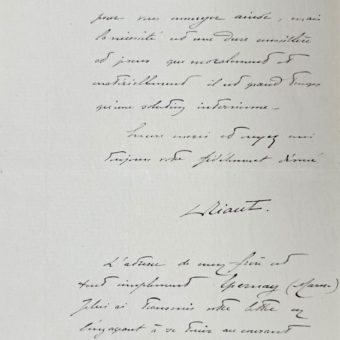 pour vous ennuyer ainsi, mais
la nécessité est une dure conseillère
et je crois que moralement et
matériellement il est grand temps
qu'une solution intervienne.
Encore merci et croyez moi
toujours votre fidèlement dévoué
L'adresse de mon frère est
tout simplement Epernay (Marne)
Je lui ai transmis votre lettre en
l'engageant à se tenir au courant